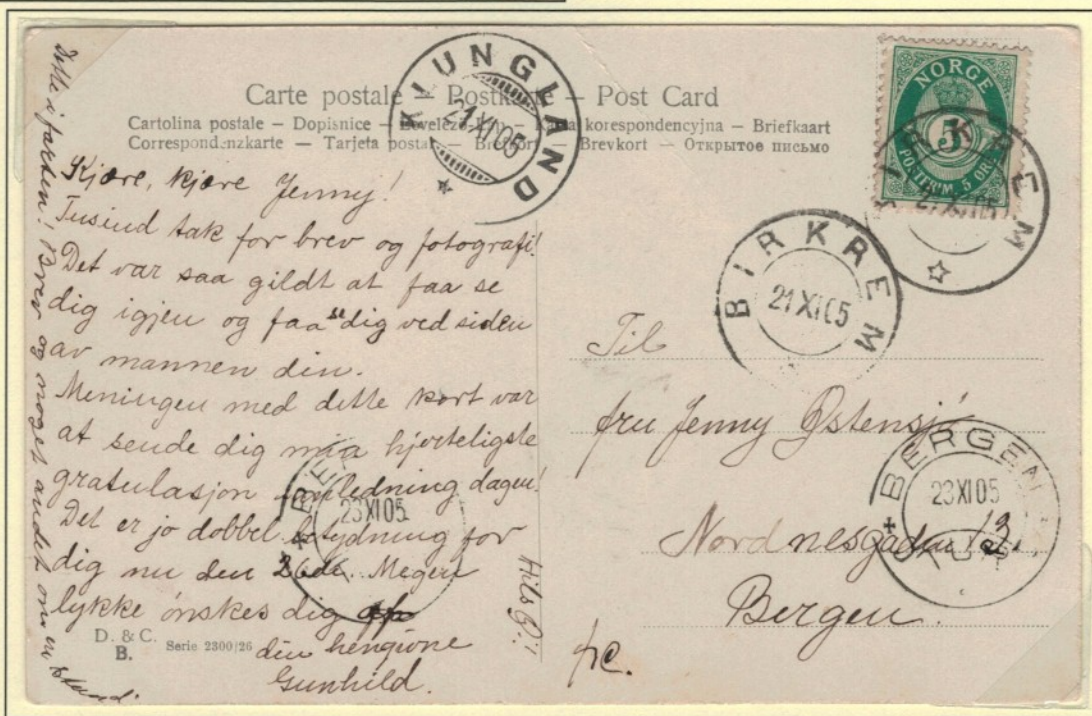 Carte postale – Postkarte – Post Card
Cartolina postale – Dopisnice – Levelező-Lap – Karta korespondencyjna – Briefkaart
Correspondenzkarte – Tarjeta postal – Brefkort – Brevkort – Открытое письмо
KJUNGLAND
21 XI 05
NORGE
5
POSTFRIM. 5 ØRE
BIRKREM
21 XI 05
BIRKREM
21 XI 05
Kjære, kjære Jenny!
Tusind tak for brev og fotografi!
Det var saa gildt at faa se
dig igjen og faa se dig ved siden
av mannen din.
Meningen med dette kort var
at sende dig min hjerteligste
gratulasjon i anledning dagen!
Det er jo dobbel betydning for
dig nu den 26de. Megen
lykke ønskes dig af
din hengivne
Gunhild.
Hils
Dette i farten! Brev og noget andet om en stund.
BERGEN
23 XI 05
Til
fru Jenny Østensjø
Nordnesgaden 13
Bergen.
BERGEN
23 XI 05
TUR
D. & C.
B.
Serie 2300/26